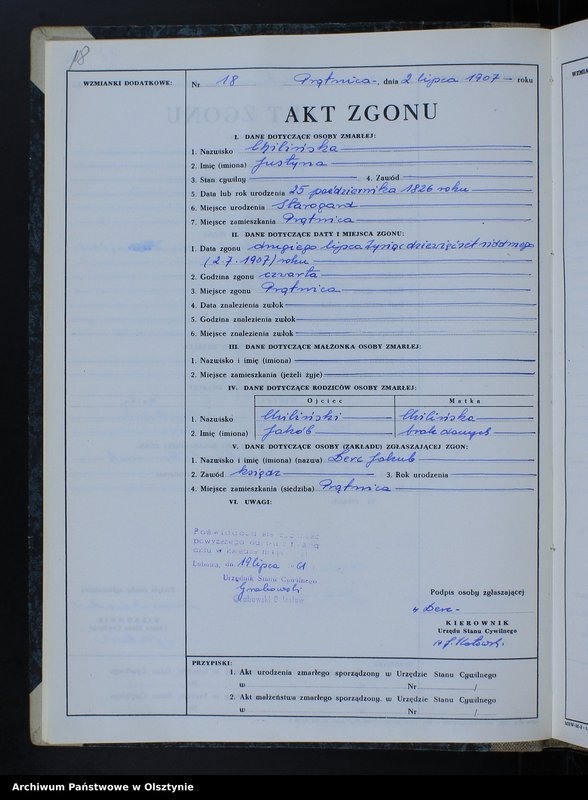 18
WZMIANKI DODATKOWE:
Nr 18 Prątnica, dnia 2 lipca 1907 roku
AKT ZGONU
I. DANE DOTYCZĄCE OSOBY ZMARŁEJ:
1. Nazwisko Chilińska
2. Imię (imiona) Justyna
3. Stan cywilny 4. Zawód
5. Data lub rok urodzenia 25 października 1826 roku
6. Miejsce urodzenia Starogard
7. Miejsce zamieszkania Prątnica
II. DANE DOTYCZĄCE DATY I MIEJSCA ZGONU:
1. Data zgonu drugiego lipca tysiąc dziewięćset siódmego
(2.7.1907) roku
2. Godzina zgonu czwarta
3. Miejsce zgonu Prątnica
4. Data znalezienia zwłok
5. Godzina znalezienia zwłok
6. Miejsce znalezienia zwłok
III. DANE DOTYCZĄCE MAŁŻONKA OSOBY ZMARŁEJ:
1. Nazwisko i imię (imiona)
2. Miejsce zamieszkania (jeżeli żyje)
IV. DANE DOTYCZĄCE RODZICÓW OSOBY ZMARŁEJ:
Ojciec Matka
1. Nazwisko Chiliński Chilińska
2. Imię (imiona) Jakób brak danych
V. DANE DOTYCZĄCE OSOBY (ZAKŁADU) ZGŁASZAJĄCEJ ZGON:
1. Nazwisko i imię (imiona) (nazwa) Derc Jakub
2. Zawód ksiądz 3. Rok urodzenia
4. Miejsce zamieszkania (siedziba) Prątnica
VI. UWAGI:
powyższego
dn. 19 lipca 61
Urzędnik Stanu Cywilnego
Grabowski
Grabowski
Podpis osoby zgłaszającej
Derc
KIEROWNIK
Urzędu Stanu Cywilnego
PRZYPISKI:
1. Akt urodzenia zmarłego sporządzony w Urzędzie Stanu Cywilnego
w Nr /
2. Akt małżeństwa zmarłego sporządzony w Urzędzie Stanu Cywilnego
w Nr /
Archiwum Państwowe w Olsztynie